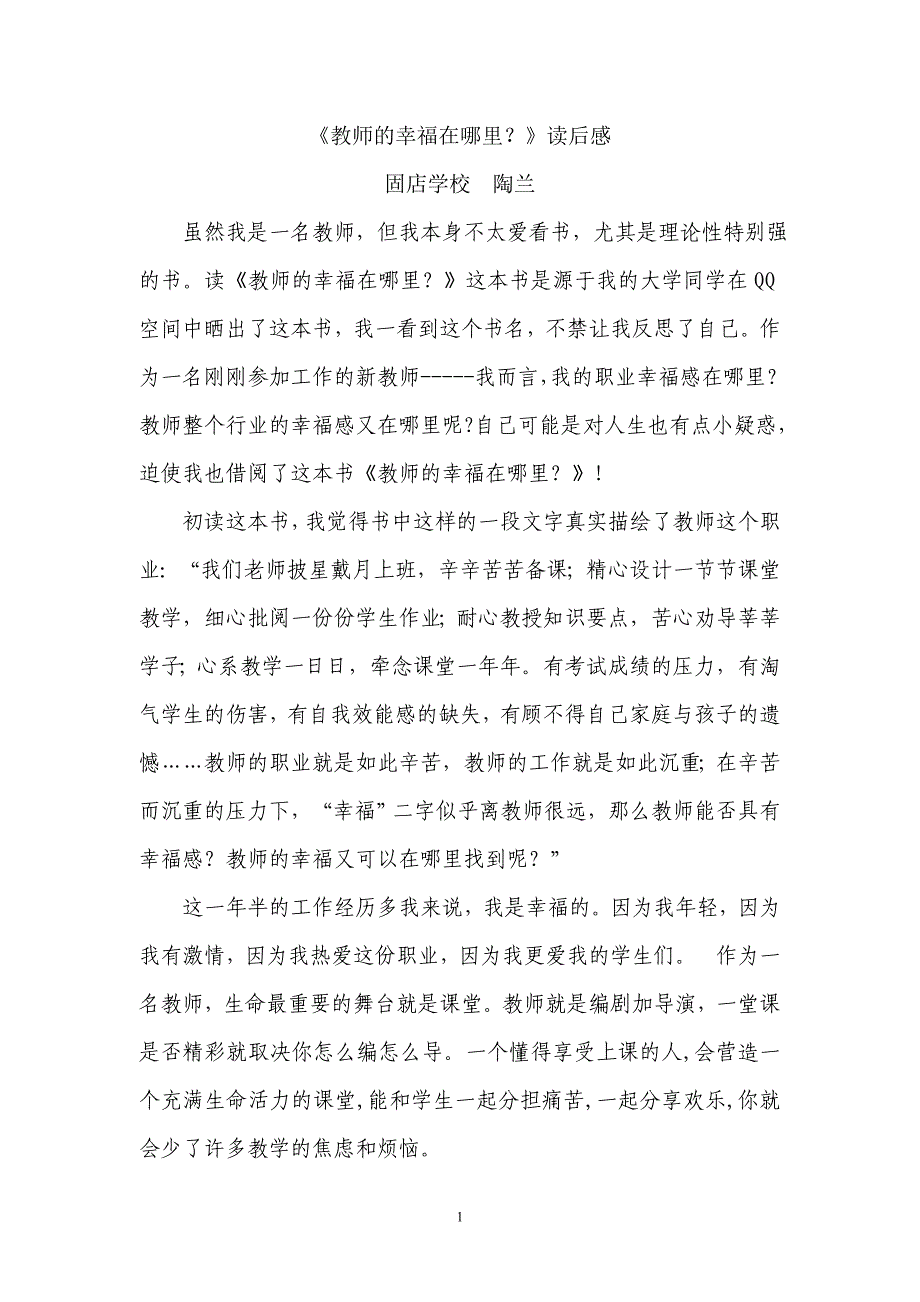 《教师的幸福在哪里？》读后感
固店学校　陶兰
虽然我是一名教师，但我本身不太爱看书，尤其是理论性特别强
的书。读《教师的幸福在哪里？》这本书是源于我的大学同学在 QQ
空间中晒出了这本书，我一看到这个书名，不禁让我反思了自己。作
为一名刚刚参加工作的新教师-----我而言，我的职业幸福感在哪里？
教师整个行业的幸福感又在哪里呢？自己可能是对人生也有点小疑惑，
迫使我也借阅了这本书《教师的幸福在哪里？》！
初读这本书，我觉得书中这样的一段文字真实描绘了教师这个职
业：“我们老师披星戴月上班，辛辛苦苦备课；精心设计一节节课堂
教学，细心批阅一份份学生作业；耐心教授知识要点，苦心劝导莘莘
学子；心系教学一日日，牵念课堂一年年。有考试成绩的压力，有淘
气学生的伤害，有自我效能感的缺失，有顾不得自己家庭与孩子的遗
憾……教师的职业就是如此辛苦，教师的工作就是如此沉重；在辛苦
而沉重的压力下，“幸福”二字似乎离教师很远，那么教师能否具有
幸福感？教师的幸福又可以在哪里找到呢？”
这一年半的工作经历多我来说，我是幸福的。因为我年轻，因为
我有激情，因为我热爱这份职业，因为我更爱我的学生们。　作为一
名教师，生命最重要的舞台就是课堂。教师就是编剧加导演，一堂课
是否精彩就取决你怎么编怎么导。一个懂得享受上课的人,会营造一
个充满生命活力的课堂,能和学生一起分担痛苦,一起分享欢乐,你就
会少了许多教学的焦虑和烦恼。
1